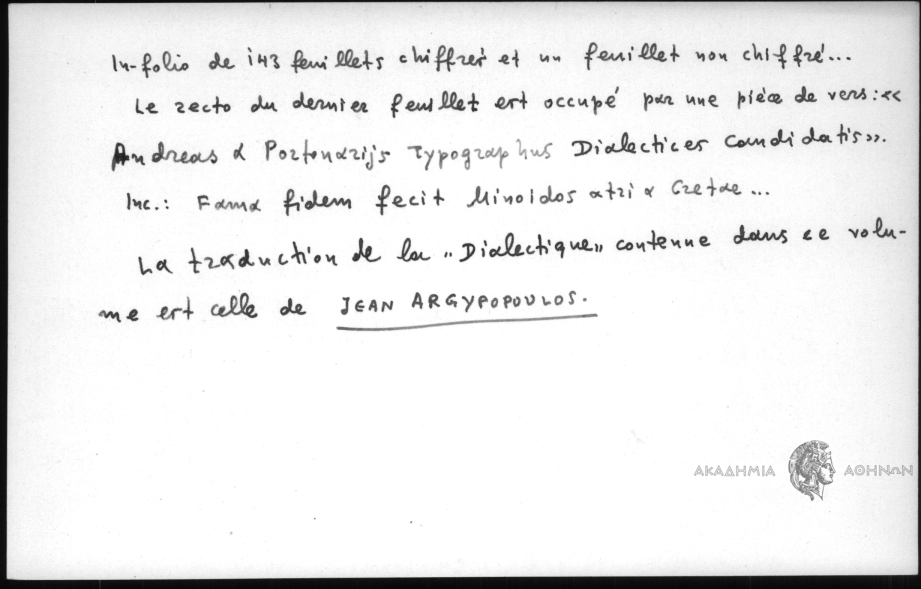 In-folio de 143 feuillets chiffrés et un feuillet non chiffré...
Le recto du dernier feuillet est occupé par une pièce de vers: «
Andreas a Portonarijs Typographus Dialectices Candidatis».
Inc.: Fama fidem fecit Minoidos atria Cretae...
La traduction de la „Dialectique„ contenue dans ce volu-
me est celle de JEAN ARGYPOPOULOS.
ΑΚΑΔΗΜΙΑ ΑΘΗΝΩΝ